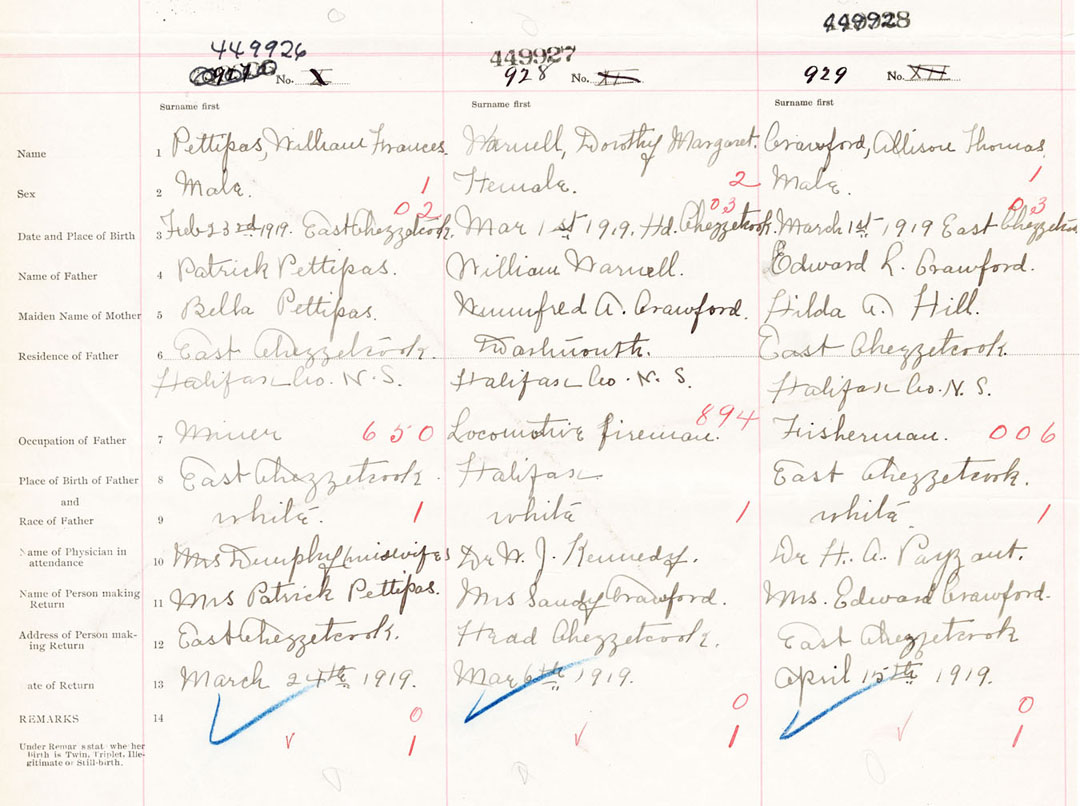 449926 449927 449928
No. X 928 No. XI 929 No. XII
Surname first Surname first Surname first
Name 1 Pettipas, William Frances. Warnell, Dorothy Margaret. Crawford, Allison Thomas.
Sex 2 Male. 1 Female. 2 Male. 1
02 03 03
Date and Place of Birth 3 Feb 23rd 1919. East Chezzetcook. Mar 1st 1919. Hd. Chezzetcook. March 1st 1919 East Chezzetcook
Name of Father 4 Patrick Pettipas. William Warnell. Edward L. Crawford.
Maiden Name of Mother 5 Bella Pettipas. Winnifred A. Crawford. Hilda A. Hill.
Residence of Father 6 East Chezzetcook. Dartmouth. East Chezzetcook.
Halifax Co. N. S. Halifax Co. N. S. Halifax Co. N. S.
Occupation of Father 7 Miner 650 Locomotive fireman. 894 Fisherman. 006
Place of Birth of Father 8 East Chezzetcook. Halifax East Chezzetcook.
and
Race of Father 9 white. 1 white 1 white. 1
Name of Physician in
attendance 10 Mrs Dumphy (midwife) Dr W. J. Kennedy. Dr H. A. Payzant.
Name of Person making
Return 11 Mrs Patrick Pettipas. Mrs Sandy Crawford. Mrs. Edward Crawford.
Address of Person mak-
ing Return 12 East Chezzetcook. Head Chezzetcook. East Chezzetcook
Date of Return 13 March 24th 1919. Mar 6th 1919. April 15th 1919.
REMARKS 14 0 0 0
Under Remarks state whether
Birth is Twin, Triplet, Ille-
gitimate or Still-birth. 1 1 1